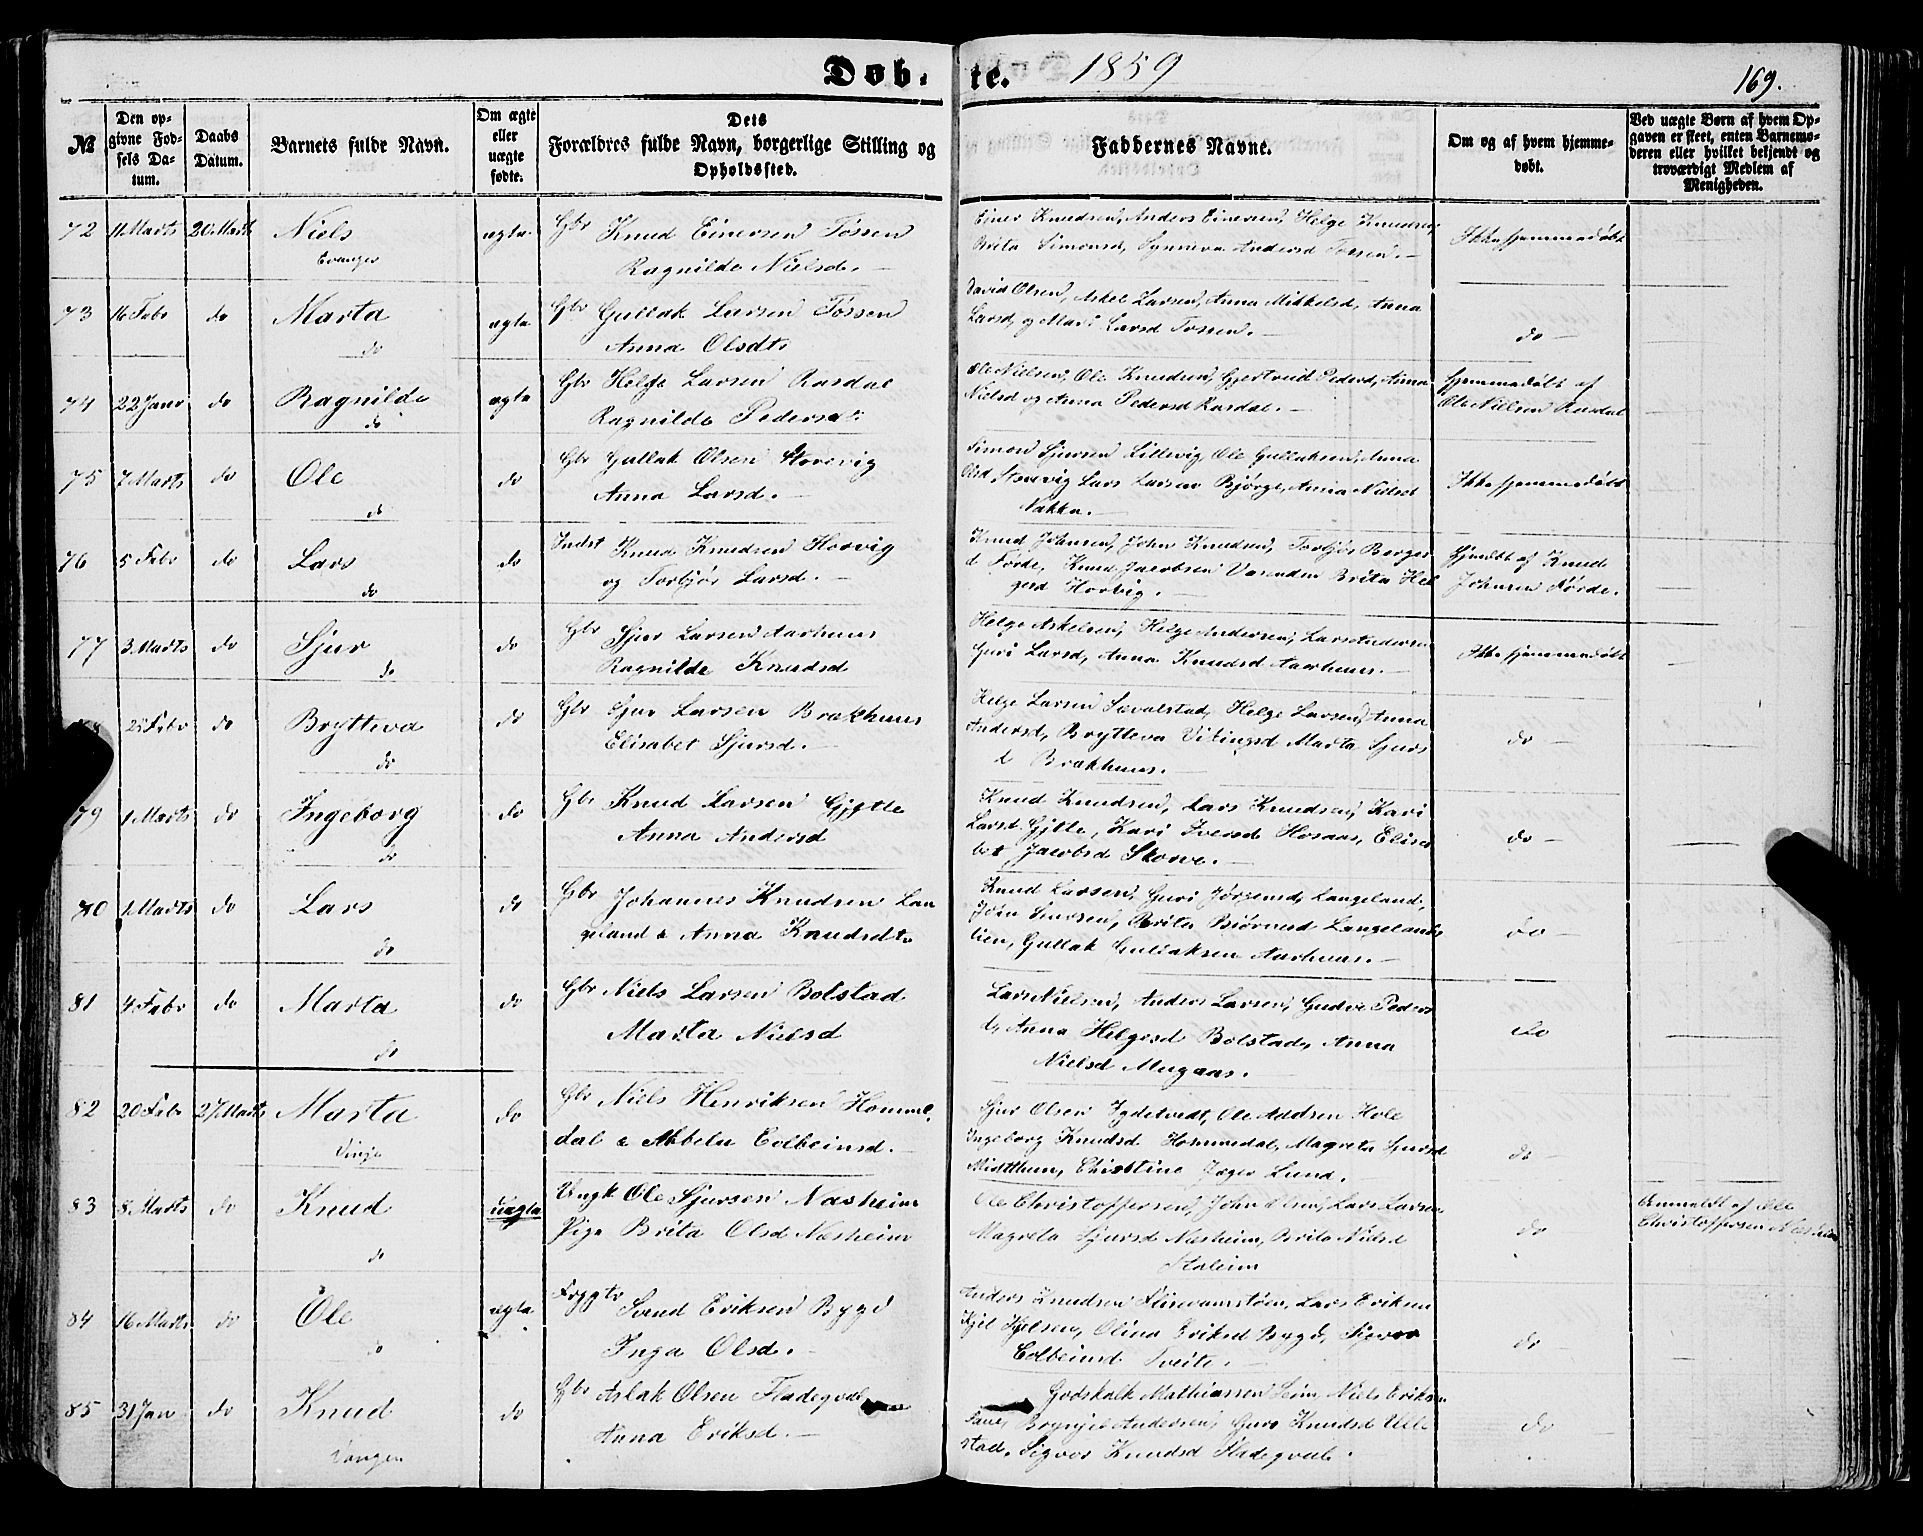 Døb. te. 1859
169.
№
Den opgivne Fødsels Datum.
Daabs Datum.
Barnets fulde Navn.
Om ægte eller uægte fødte.
Dets Forældres fulde Navn, borgerlige Stilling og Opholdssted.
Faddernes Navne.
Om og af hvem hjemmedøbt.
Ved uægte Børn af hvem Opgaven er skeet, enten Barnemoderen eller hvilket bekjendt og troværdigt Medlem af Menigheden.
72 11 Marts 20 Marts Niels ægte Gbr Knud Einersen Tøssen
Evanger Ragnilde Nielsd.
Einer Knudsen, Anders Einersen, Helge Knudsen,
Brita Simonsd, Synneva Andersd Tøssen. Ikke hjemmedøbt
73 16 Febr do Marta ægte Gbr Gullak Larsen Tøssen
do Anna Olsdt
David Olsen, Askel Larsen, Anna Mikkelsd, Anna
Larsd, og Mari Larsd Tøssen. do
74 22 Janr do Ragnilde ægte Gbr Helge Larsen Rasdal
do Ragnilde Pedersd
Ole Nielsen, Ole Knudsen, Gjertrud Pedersd, Anna
Nielsd og Anna Pedersd Rasdal. Hjemmedøbt af
Ole Nielsen Rasdal
75 7 Marts do Ole do Gbr Gullak Olsen Storevig
do Anna Larsd.
Simon Sjursen Lillevig Ole Gullaksen, Anna
Olsd Storevig Lars Larsen Bjørge, Anna Nielsd
Nakka. Ikke hjemmedøbt
76 5 Febr do Lars do Indst Knud Knudsen Horvig
do og Torbjør Larsd.
Knud Johnsen, John Knudsen, Torbjør Berges
d Førde, Knud Jacobsen Brita Hel
gesd Horvig. Hjmdbt af Knud
Johnsen Førde.
77 3 Marts do Sjur do Gbr Sjur Larsen Aarhuus
do Ragnilde Knudsd
Helge Askelsen, Helge Andersen, Lars Andersen
Guri Larsd, Anna Knudsd Aarhuus. Ikke hjemmedøbt
25 Febr do Brytteva do Gbr Sjur Larsen Brakhuus
do Elisabet Sjursd.
Helge Larsen Sævalstad, Helge Larsen, Anna
Andersd, Brytteva Vikingsd Marta Sjurs
d Brakhuus. do
79 1 Marts do Ingeborg do Gbr Knud Larsen Gjytle
do Anna Andersd
Knud Knudsen, Lars Knudsen, Kari
Larsd Gjtle, Kari Iversd Horsaas, Elisa
bet Jacobsd Skorve. do
80 1 Marts do Lars do Gbr Johannes Knudsen Lan
do geland & Anna Knudsdt
Knud Larsen, Guri Jørgensd, Langeland,
John Knudsen, Brita Biørnsd Langelands
lien, Gullak Gullaksen Aarhuus. do
81 4 Febr do Marta do Gbr Niels Larsen Bolstad
do Marta Nielsd
Lars Nielsen, Anders Larsen, Gudve Peders
d, Anna Helgesd Bolstad, Anna
Nielsd Mugaas. do
82 20 Febr 27 Marts Marta do Gbr Niels Henriksen Homme
Vinje dal & Abbelu Colbeinsd.
Sjur Olsen Tvedt, Ole Andsen Hole
Ingeborg Knudsd Hommedal, Magreta Sjursd
Christine Jager Lund. do
83 8 Marts do Knud uægte Ungk Ole Sjursen Næsheim
do Pige Brita Olsd Næsheim
Ole Christoffersen, John Olsen, Lars Larsen
Magrela Sjursd Næsheim, Brita Nielsd
Staleim do Anmeldt af Ole
Christoffersen Næsheim
84 16 Marts do Ole ægte Svend Eriksen Bygd
do Inga Olsd.
Anders Knudsen Lars Eriksen
Kjel Kjelsen, Olina Eriksd Bygd,
Colbeinsd Tveite. do
85 31 Jan do Knud do Gbr Aslak Olsen Fladeqval
Vangen Anna Eriksd.
Godskalk Mathiassen Seim Niels Eriksen
Andersen, Guro Knudsd Ulle
stad, Sigvor Knudsd Fladeqval. do